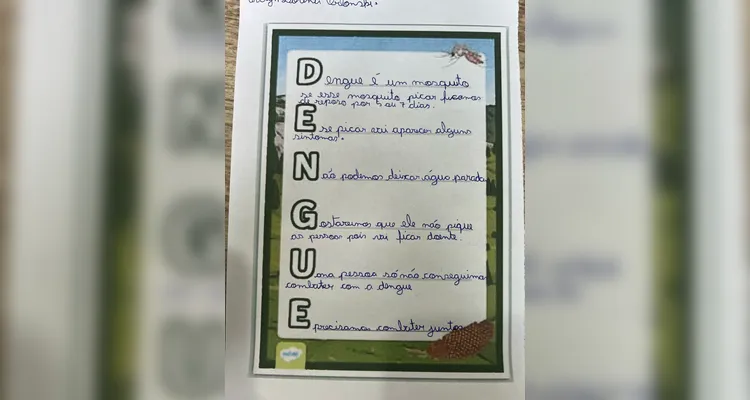 Dengue é um mosquito
se esse mosquito picar ficamos
de reposo por 5 au 7 dias.
E se picar vai aparecer alguns
sintomas.
Não podemos deixar água parada
Gostaremos que ele não pique
as pessoas pois vai ficar doente.
Uma pessoa só não conseguimos
combater com a dengue
E precisamos combater juntos